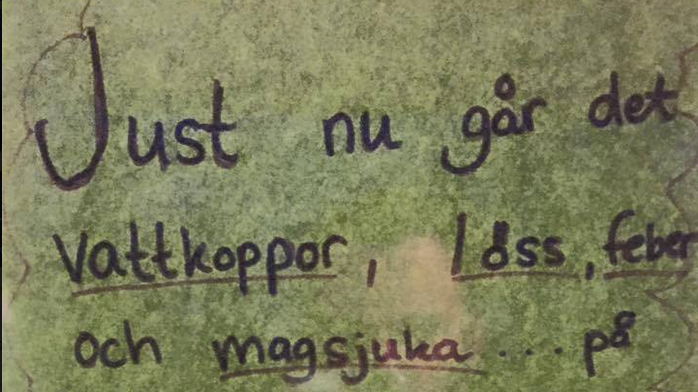 Just nu går det
Vattkoppor, löss, feber
och magsjuka ... på